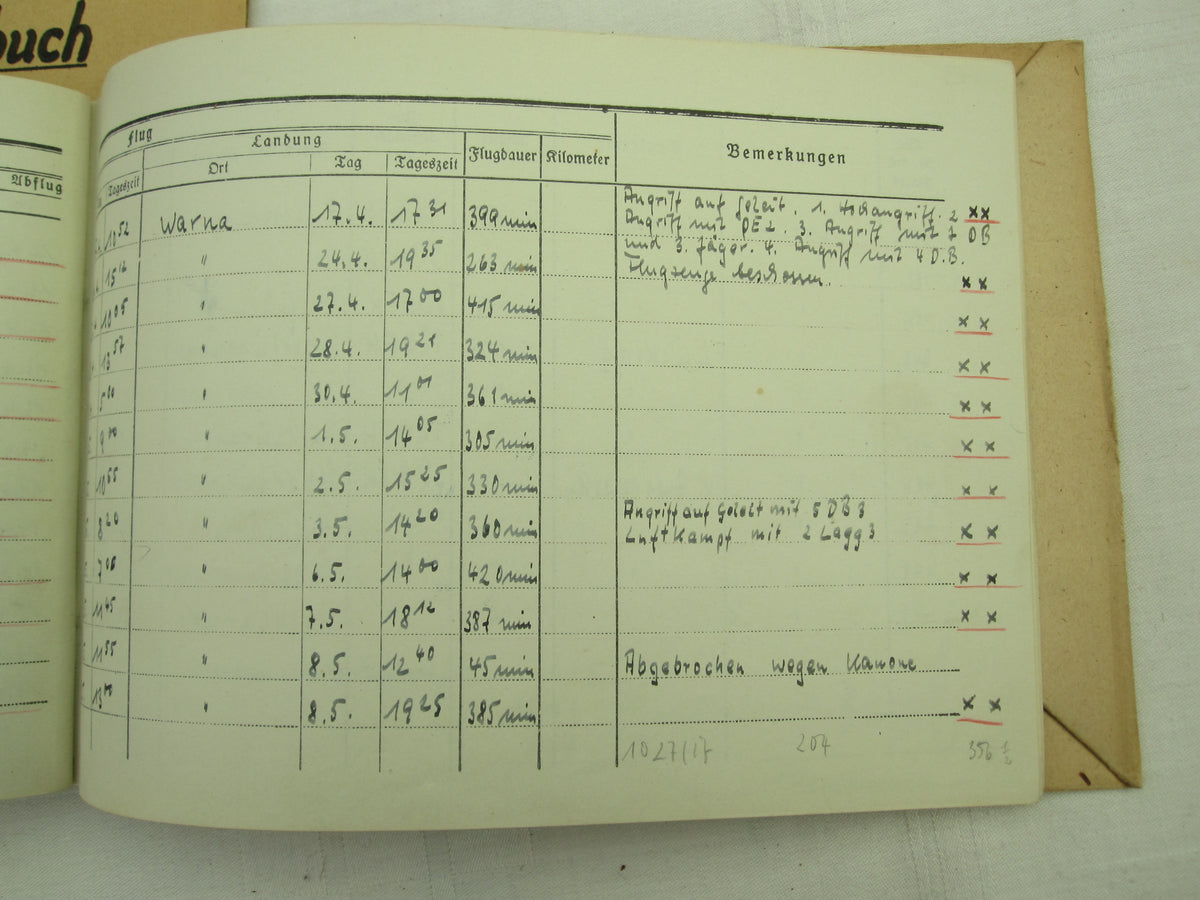 buch
Abflug
Flug
Landung
Flugdauer
Kilometer
Bemerkungen
Tageszeit
Ort
Tag
Tageszeit
10 52 Warna 17.4. 17 31 399 min Angriff auf Geleit. 1. Hochangriff. 2 xx
Angriff mit PE2. 3. Angriff mit 7 DB
15 12 " 24.4. 19 35 263 min und 3. Jäger. 4. Angriff mit 4 D.B.
Flugzeuge beschossen. x x
10 05 " 27.4. 17 00 415 min x x
13 57 " 28.4. 19 21 324 min x x
5 00 " 30.4. 11 01 361 min x x
9 00 " 1.5. 14 05 305 min x x
10 55 " 2.5. 15 25 330 min x x
8 20 " 3.5. 14 20 360 min Angriff auf Geleit mit 5 DB3
Luftkampf mit 2 Lagg3 x x
7 00 " 6.5. 14 00 420 min x x
11 45 " 7.5. 18 12 387 min x x
11 55 " 8.5. 12 40 45 min Abgebrochen wegen Kanone
13 00 " 8.5. 19 25 385 min x x
1027/17 204 356